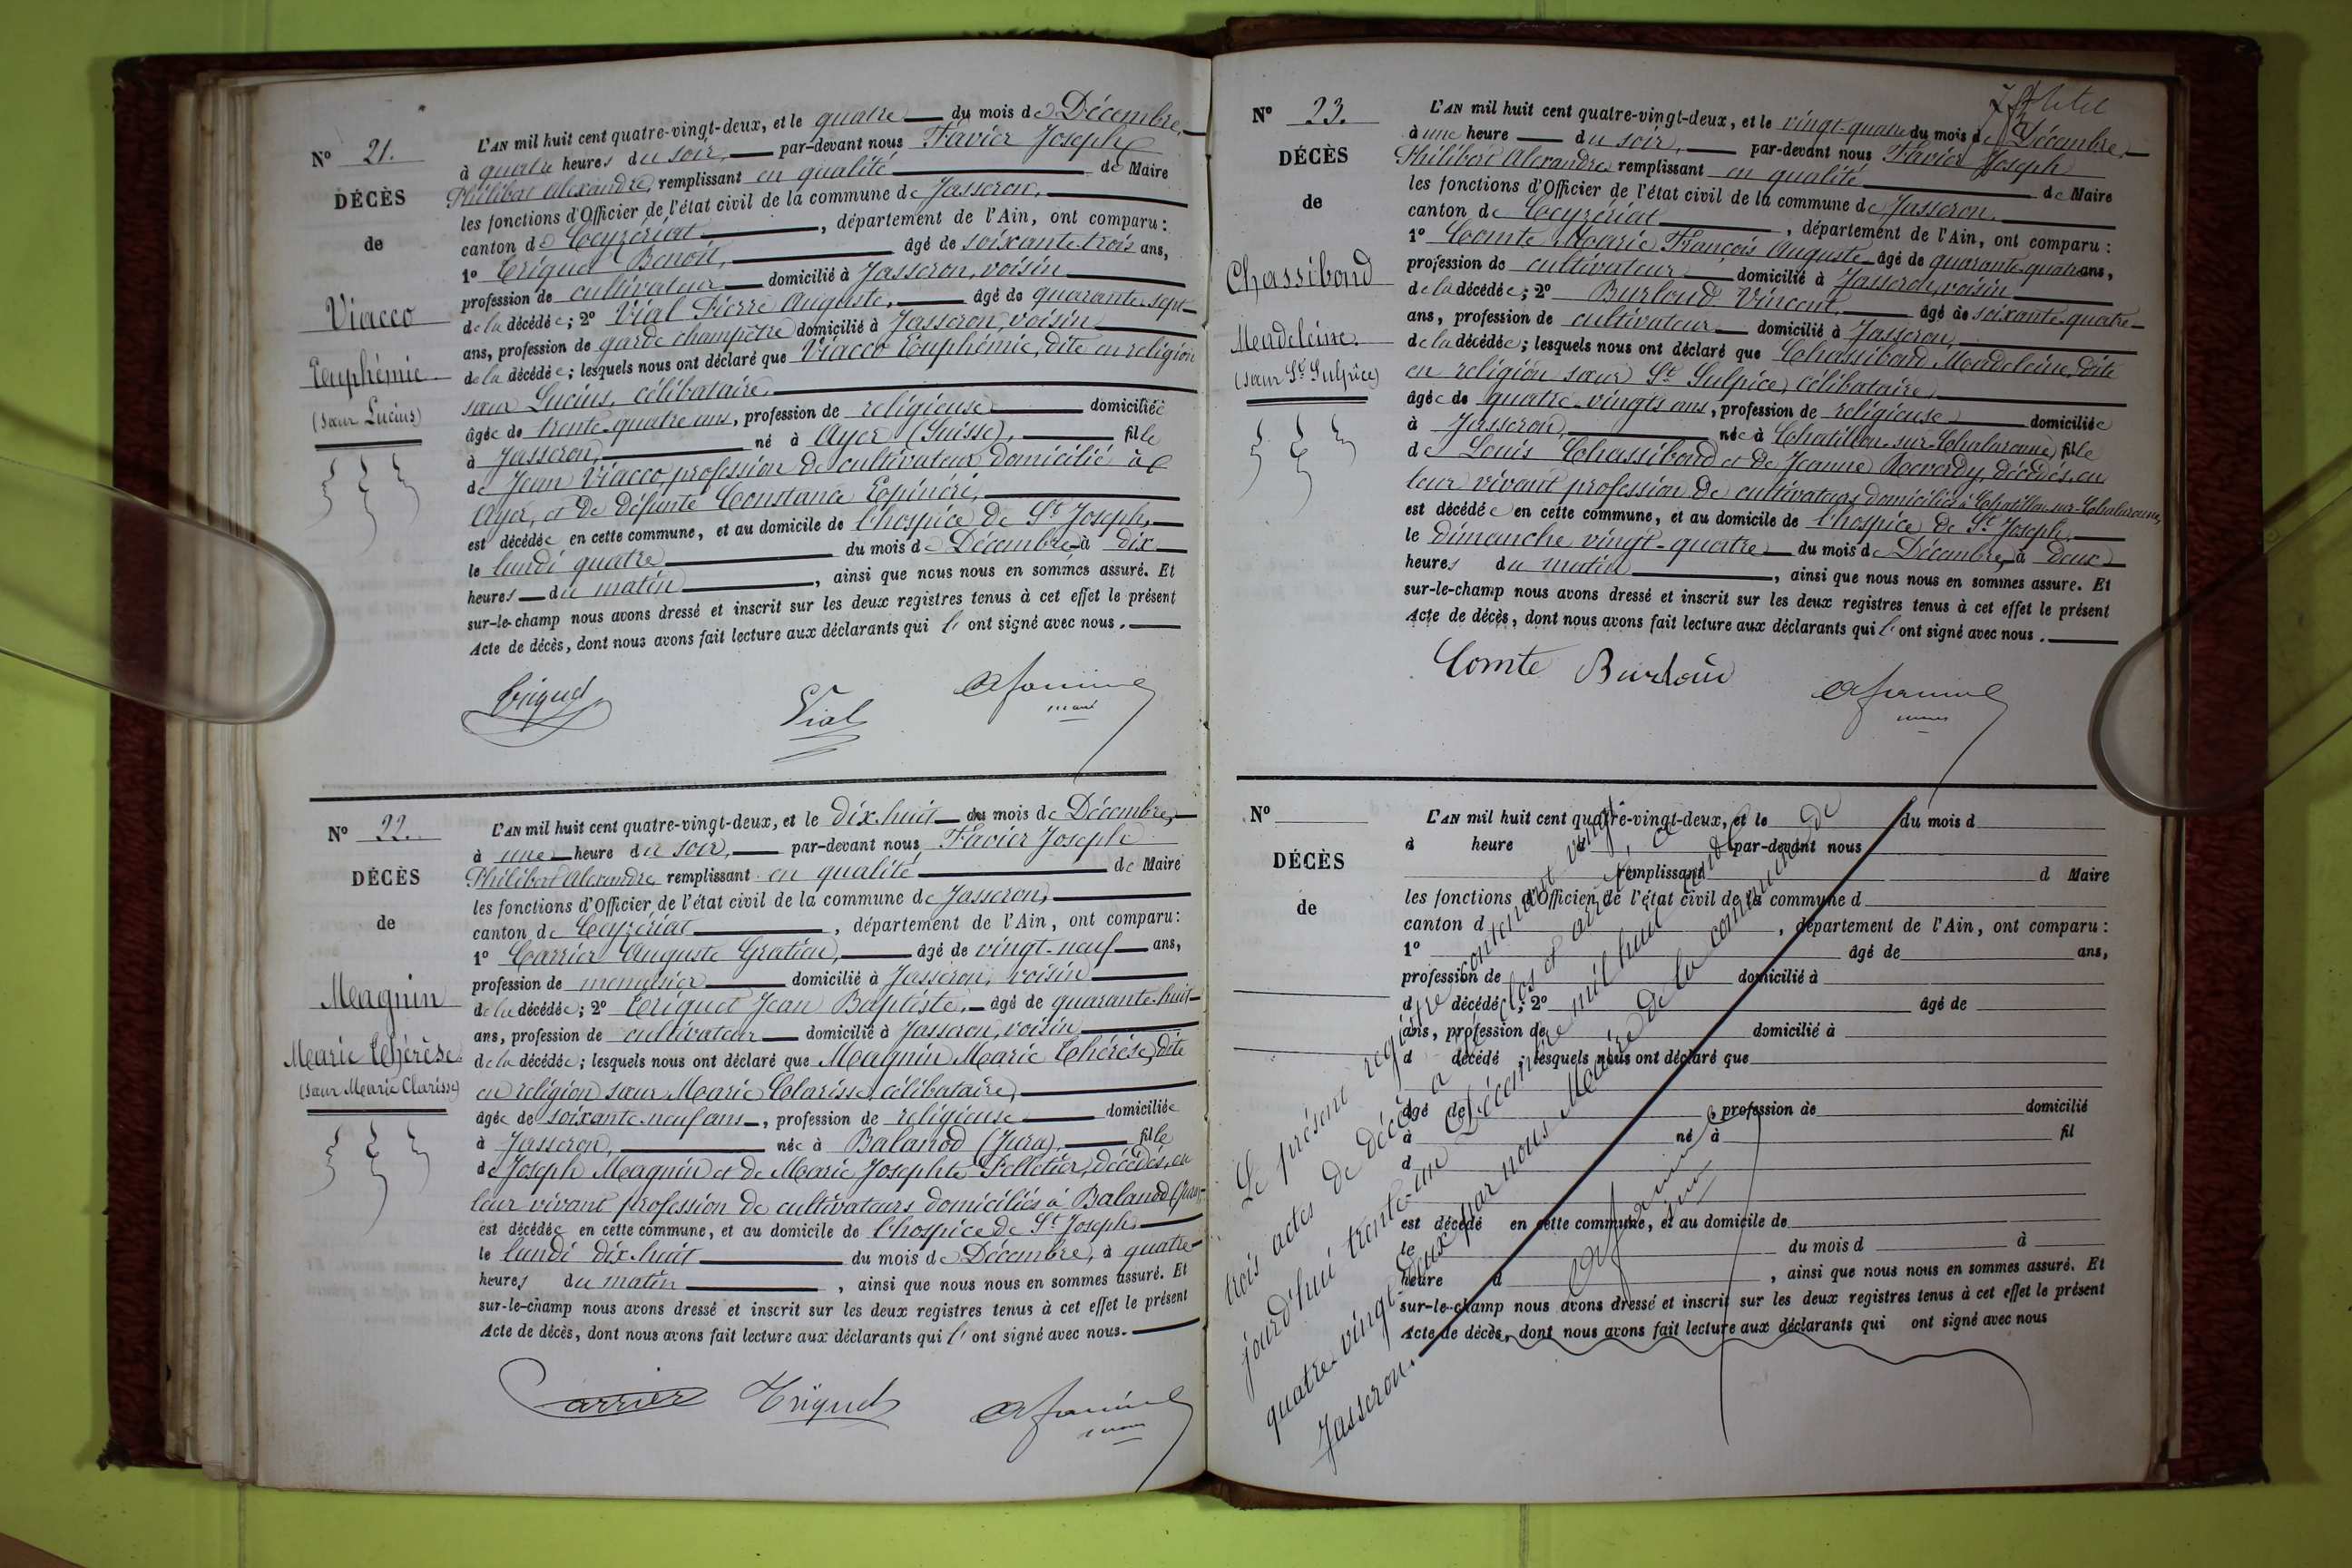 Nº 21.
DÉCÈS
de
Viacco
Euphémie
(sœur Lucius)
L'AN mil huit cent quatre-vingt-deux, et le quatre du mois de Décembre,
à quatre heures du soir, par-devant nous Favier Joseph
Philibert Alexandre, remplissant en qualité de Maire
les fonctions d'Officier de l'état civil de la commune de Jasseron,
canton de Ceyzériat, département de l'Ain, ont comparu :
1º Triquet Benoît, âgé de soixante trois ans,
profession de cultivateur domicilié à Jasseron, voisin
de la décédée ; 2º Vial Pierre Auguste, âgé de quarante-sept
ans, profession de garde champêtre domicilié à Jasseron, voisin
de la décédée ; lesquels nous ont déclaré que Viacco Euphémie, dite en religion
sœur Lucius, célibataire,
âgée de trente-quatre ans, profession de religieuse domiciliée
à Jasseron, né à Ayer (Suisse), fille
de Jean Viacco, profession de cultivateur domicilié à
Ayer, et de défunte Constance
est décédée en cette commune, et au domicile de l'hospice de St Joseph,
le lundi quatre du mois de Décembre à dix
heures du matin, ainsi que nous nous en sommes assuré. Et
sur-le-champ nous avons dressé et inscrit sur les deux registres tenus à cet effet le présent
Acte de décès, dont nous avons fait lecture aux déclarants qui l'ont signé avec nous.
Triquet Vial
Nº 22.
DÉCÈS
de
Magnin
Marie Thérèse
(sœur Marie Clarisse)
L'AN mil huit cent quatre-vingt-deux, et le dix-huit du mois de Décembre,
à une heure du soir, par-devant nous Favier Joseph
Philibert Alexandre, remplissant en qualité de Maire
les fonctions d'Officier de l'état civil de la commune de Jasseron,
canton de Ceyzériat, département de l'Ain, ont comparu :
1º Carrier Auguste Gratien, âgé de vingt-neuf ans,
profession de menuisier domicilié à Jasseron, voisin
de la décédée ; 2º Triquet Jean Baptiste, âgé de quarante-huit
ans, profession de cultivateur domicilié à Jasseron, voisin
de la décédée ; lesquels nous ont déclaré que Magnin Marie Thérèse, dite
en religion sœur Marie Clarisse, célibataire,
âgée de soixante-neuf ans, profession de religieuse domiciliée
à Jasseron, née à Balanod (Jura), fille
de Joseph Magnin et de Marie Josephte Pelletier, décédés, en
leur vivant profession de cultivateurs domiciliés à Balanod (Jura),
est décédée en cette commune, et au domicile de l'hospice de St Joseph
le lundi dix-huit du mois de Décembre, à quatre
heures du matin, ainsi que nous nous en sommes assuré. Et
sur-le-champ nous avons dressé et inscrit sur les deux registres tenus à cet effet le présent
Acte de décès, dont nous avons fait lecture aux déclarants qui l'ont signé avec nous.
Carrier Triquet
Nº 23.
DÉCÈS
de
Chassiboud
Madeleine
(sœur St Sulpice)
L'AN mil huit cent quatre-vingt-deux, et le vingt-quatre du mois de Décembre,
à une heure du soir, par-devant nous Favier Joseph
Philibert Alexandre remplissant en qualité de Maire
les fonctions d'Officier de l'état civil de la commune de Jasseron,
canton de Ceyzériat, département de l'Ain, ont comparu :
1º Comte Marie François Auguste âgé de quarante-quatre ans,
profession de cultivateur domicilié à Jasseron, voisin
de la décédée ; 2º Burloud Vincent, âgé de soixante-quatre
ans, profession de cultivateur domicilié à Jasseron,
de la décédée ; lesquels nous ont déclaré que Chassiboud Madeleine, dite
en religion sœur St Sulpice, célibataire,
âgée de quatre-vingts ans, profession de religieuse domiciliée
à Jasseron, née à Chatillon-sur-Chalaronne, fille
de Louis Chassiboud et de Jeanne décédés, en
leur vivant profession de cultivateurs domiciliés à Chatillon-sur-Chalaronne,
est décédée en cette commune, et au domicile de l'hospice de St Joseph,
le dimanche vingt-quatre du mois de Décembre, à deux
heures du matin, ainsi que nous nous en sommes assuré. Et
sur-le-champ nous avons dressé et inscrit sur les deux registres tenus à cet effet le présent
Acte de décès, dont nous avons fait lecture aux déclarants qui l'ont signé avec nous.
Comte Burloud
Nº
DÉCÈS
de
L'AN mil huit cent quatre-vingt-deux, et le du mois d
à heure d par-devant nous
remplissant d Maire
les fonctions d'Officier de l'état civil de la commune d
canton d , département de l'Ain, ont comparu :
1º âgé de ans,
profession de domicilié à
d décédé ; 2º âgé de
ans, profession de domicilié à
d décédé ; lesquels nous ont déclaré que
âgé de profession de domicilié
à né à fil
d
est décédé en cette commune, et au domicile de
le du mois d à
heure d , ainsi que nous nous en sommes assuré. Et
sur-le-champ nous avons dressé et inscrit sur les deux registres tenus à cet effet le présent
Acte de décès, dont nous avons fait lecture aux déclarants qui ont signé avec nous
Le présent registre contenant vingt
trois actes de décès a été clos et arrêté, ce
jourd'hui trente-un Décembre mil huit cent
quatre-vingt-deux par nous Maire de la commune de
Jasseron.